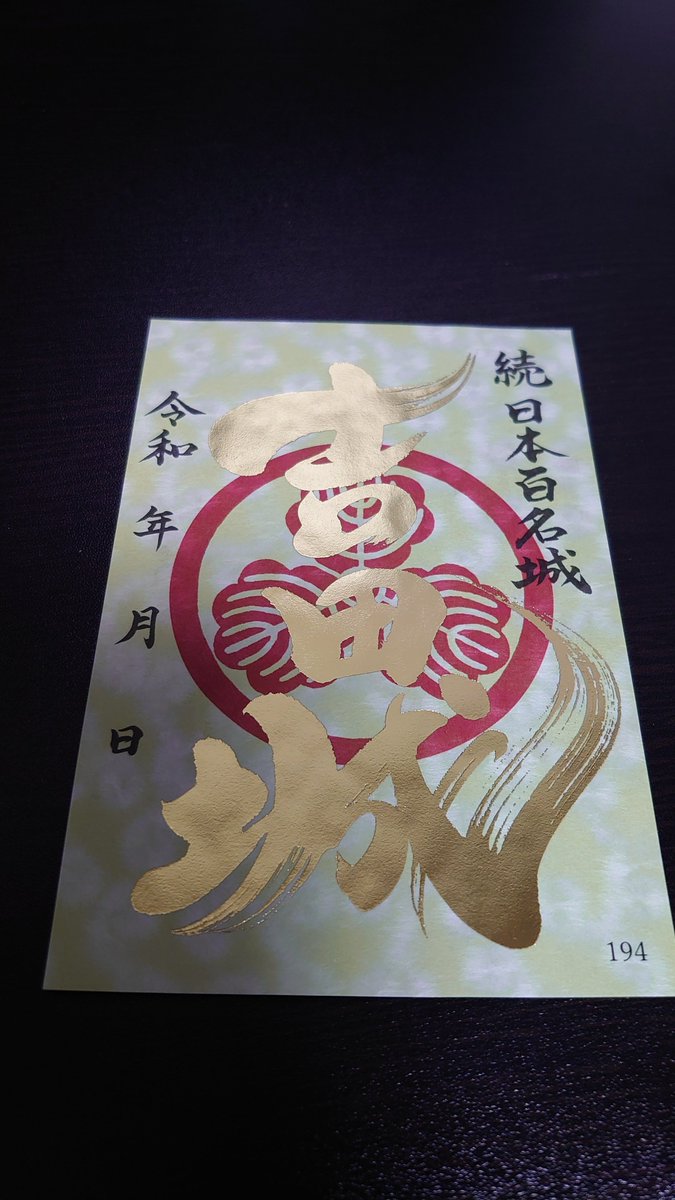 続日本百名城
吉田城
令和 年 月 日
194